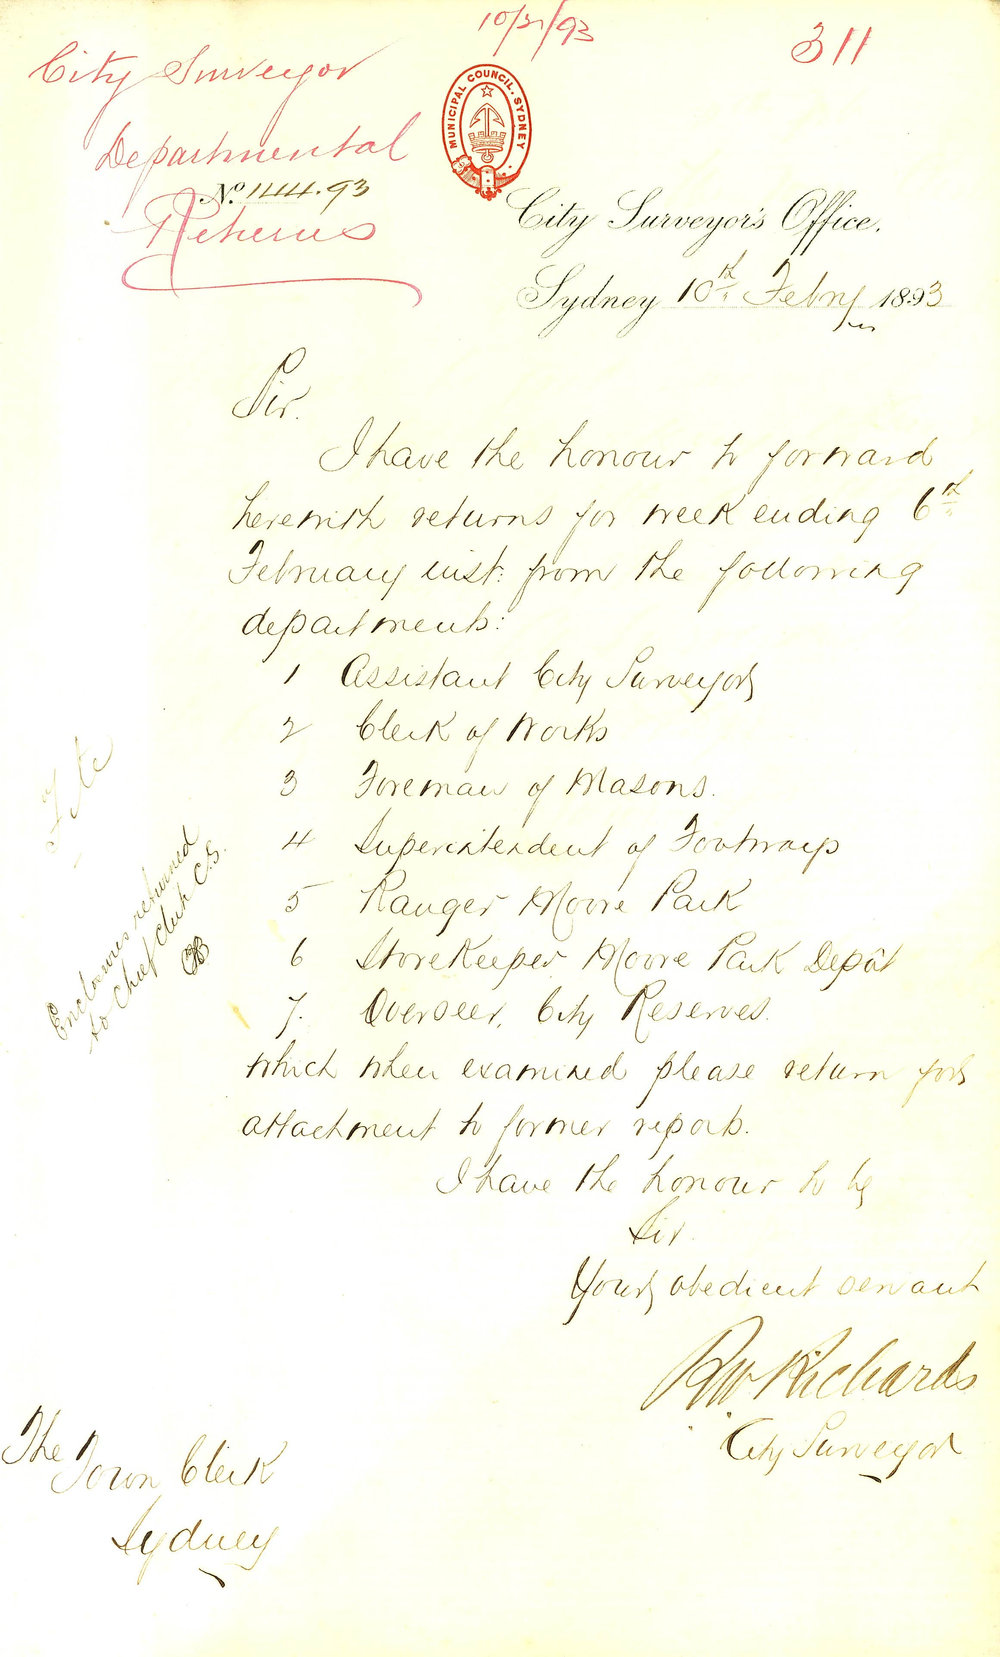 10/2/93
311
City Surveyor
Departmental
Returns
No. 144.93
MUNICIPAL COUNCIL. SYDNEY
City Surveyor's Office.
Sydney 10th Febry 1893
Sir.
I have the honour to forward
herewith returns for week ending 6th
February inst: from the following
departments:
1 Assistant City Surveyor
2 Clerk of Works
3 Foreman of Masons.
4 Superintendent of Footways
5 Ranger Moore Park
6 Storekeeper Moore Park Depôt
7. Overseer, City Reserves.
which when examined please return for
attachment to former reports.
I have the honour to be
Sir.
Your obedient servant
RW Richards
City Surveyor
The
Town Clerk
Sydney
Enclosures returned
to Chief Clerk C.S.